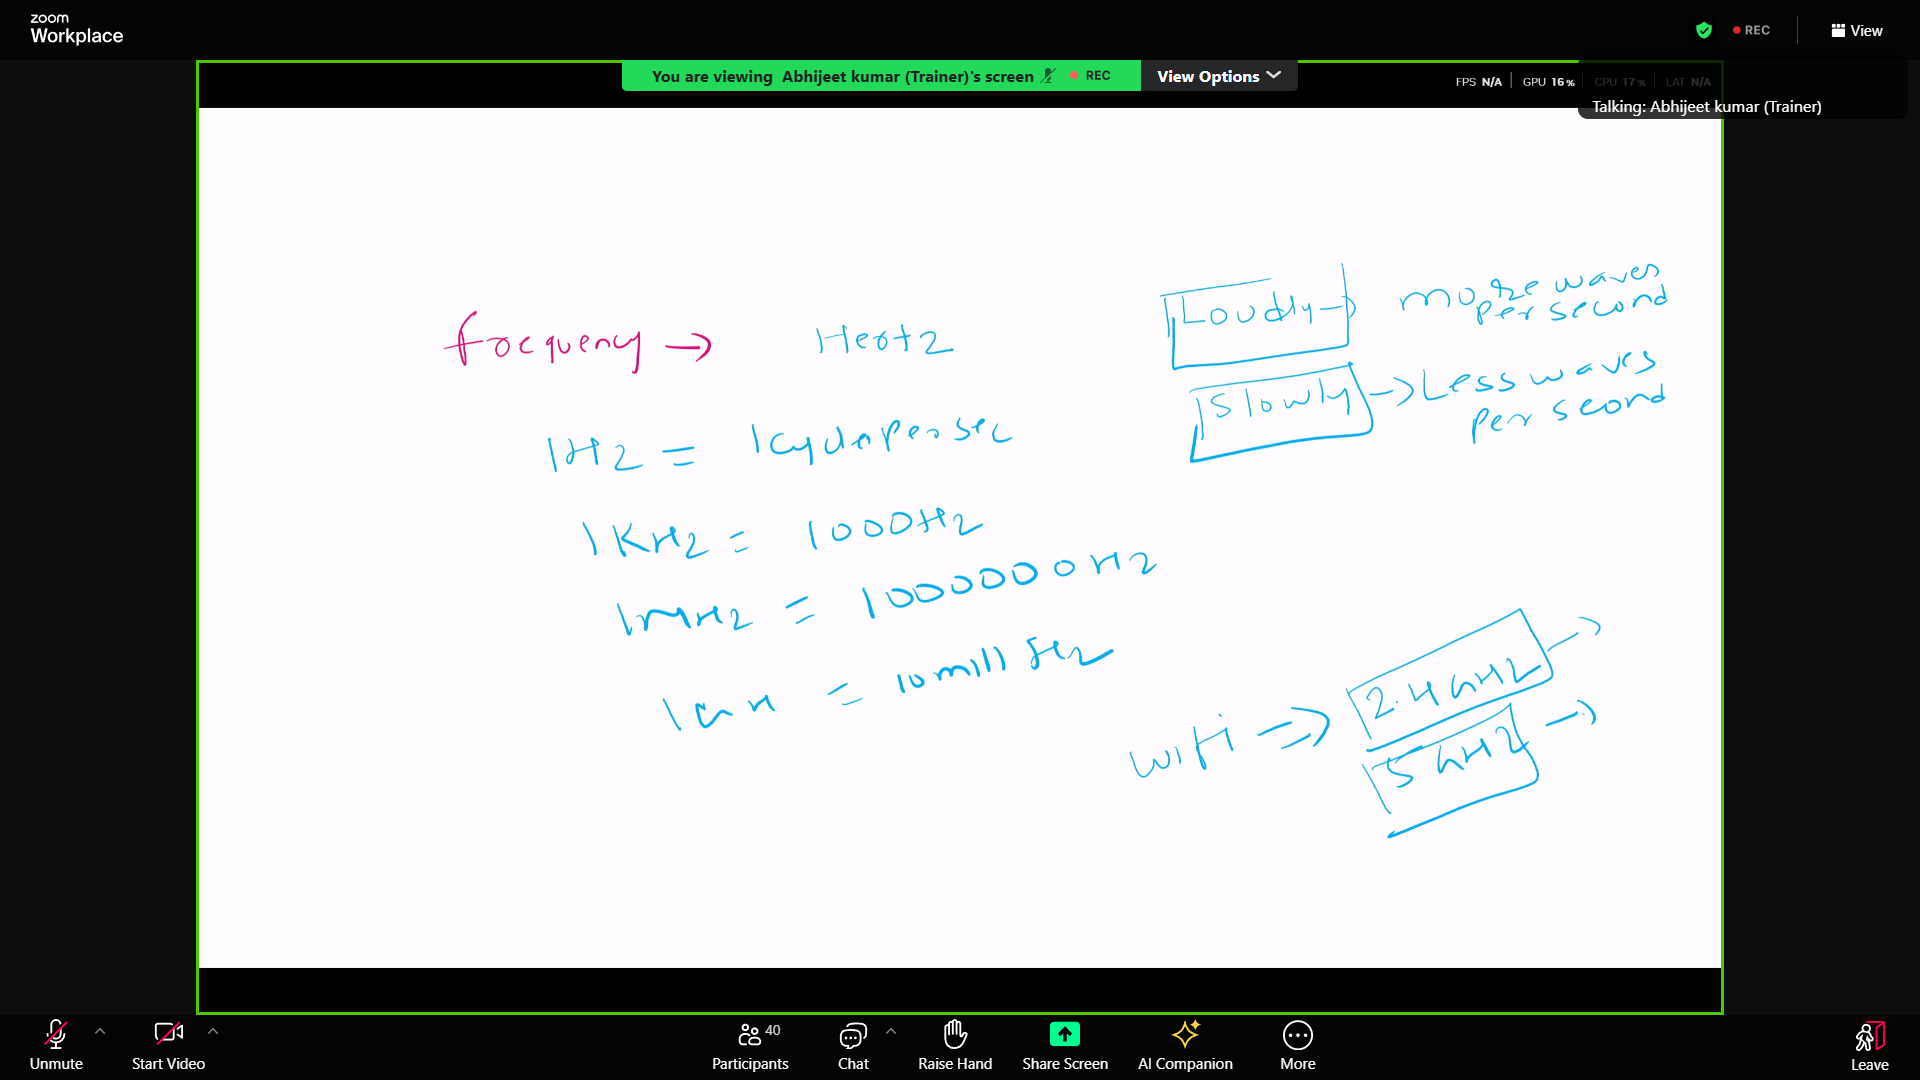 zoom
Workplace
REC
View
You are viewing Abhijeet kumar (Trainer)'s screen
REC
View Options
FPS N/A | GPU 16% | CPU 17% | LAT N/A
Talking: Abhijeet kumar (Trainer)
frequency → Hertz
1Hz = 1 cycle per sec
1KHz = 1000Hz
1MHz = 1000000Hz
= 10 mill Hz
Loudly → more waves
per second
Slowly → Less waves
per seond
wifi ⇒ 2.4GHz →
5GHz →
Unmute
Start Video
Participants
40
Chat
Raise Hand
Share Screen
AI Companion
More
Leave